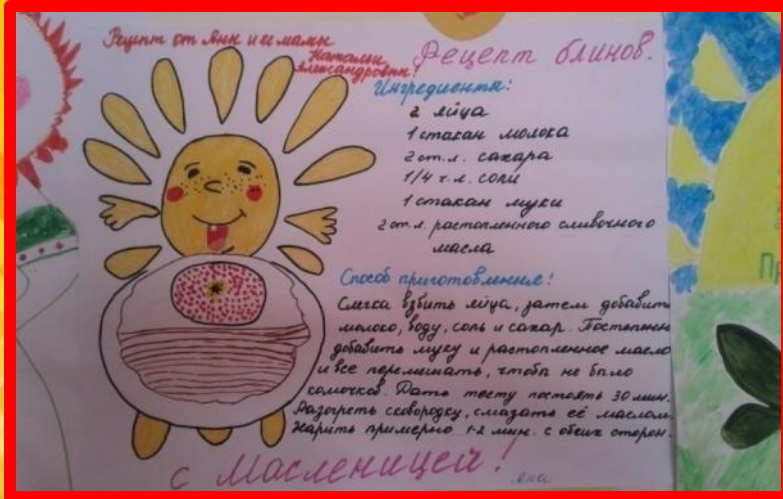 Рецепт от Яны и её мамы
Натальи
Александровны!
Рецепт блинов.
Ингредиенты:
2 яйца
1 стакан молока
2 ст. л. сахара
1/4 ч. л. соли
1 стакан муки
2 ст. л. растопленного сливочного
масла
Способ приготовления:
Слегка взбить яйца, затем добавить
молоко, воду, соль и сахар. Постепенно
добавить муку и растопленное масло
и все перемешать, чтобы не было
комочков. Дать тесту постоять 30 мин.
Разогреть сковородку, смазать её маслом.
Жарить примерно 1-2 мин. с обеих сторон.
с Масленицей!
Яна